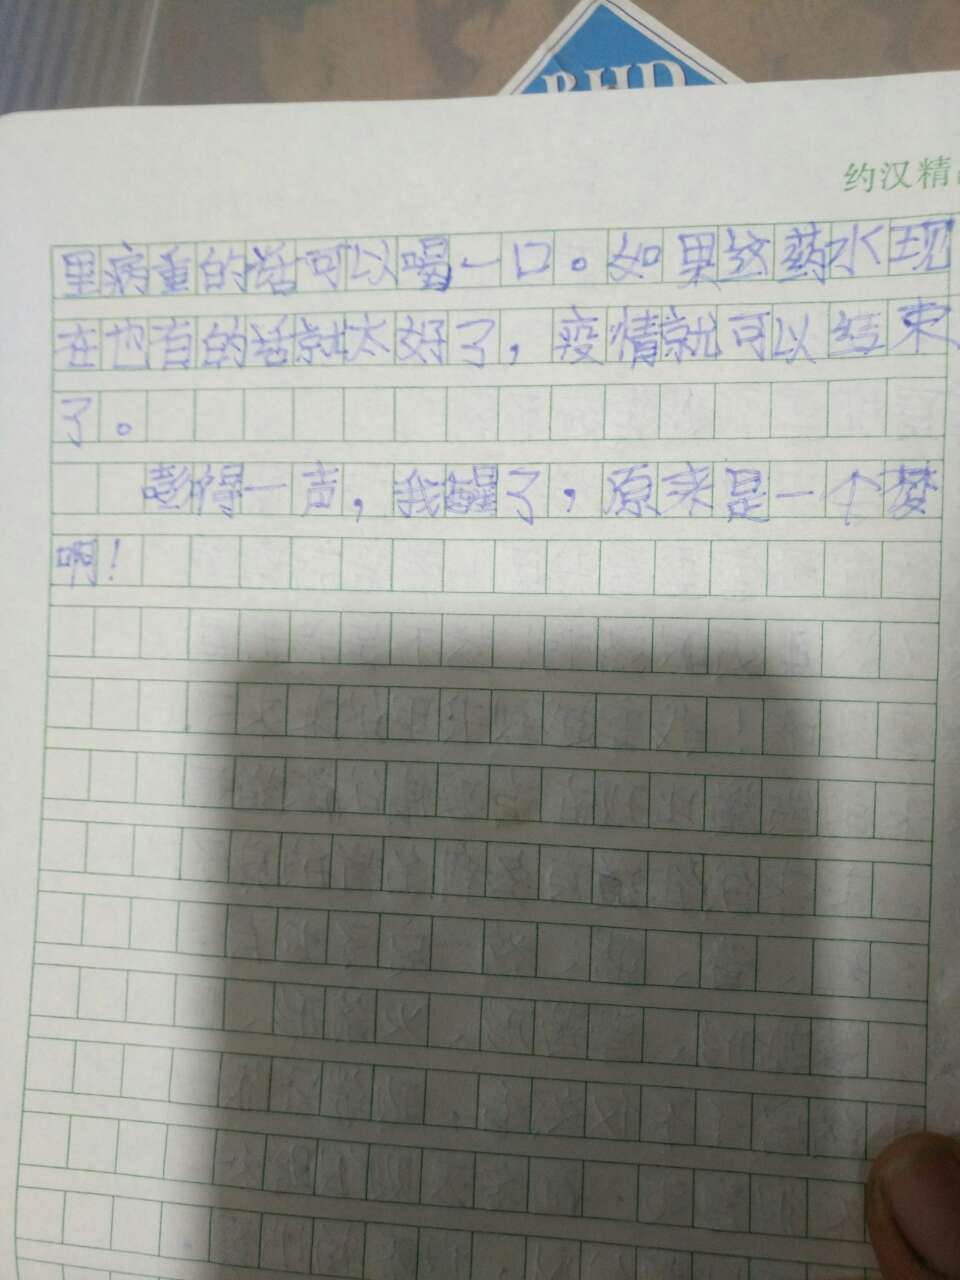 BHD
约汉精
里病重的话可以喝一口。如果这药水现
在也有的话就太好了，疫情就可以结束
了。
嘭得一声，我醒了，原来是一个梦
啊！